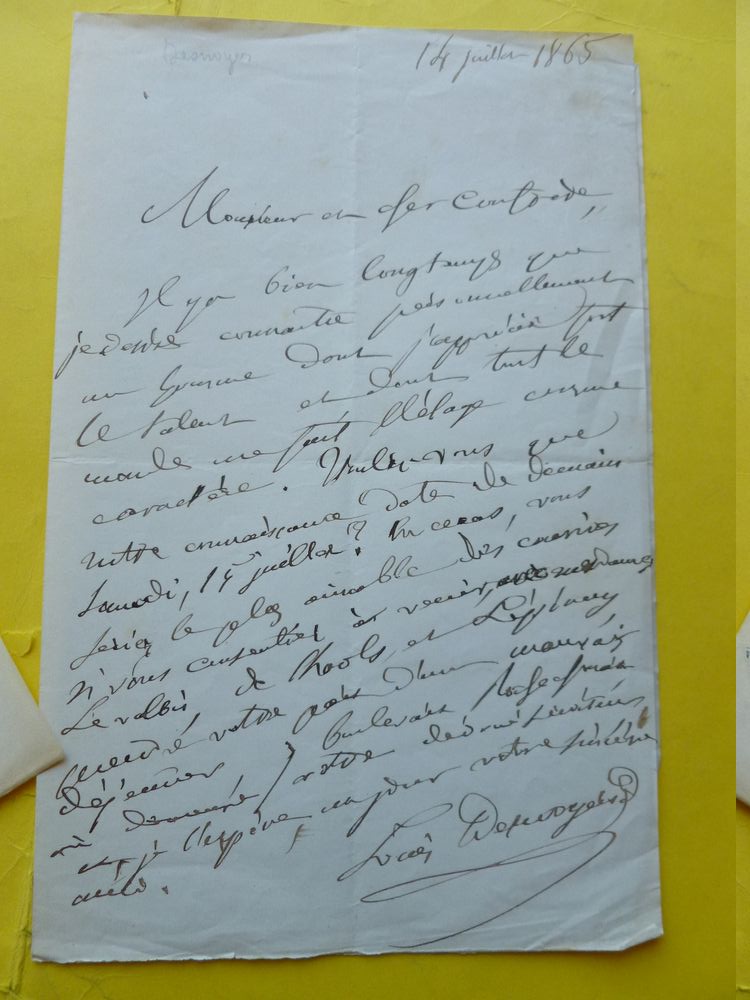 Desnoyers
14 juillet 1865
Monsieur et cher Confrère,
Il y a bien longtemps que
je desire connaitre personnellement
un homme dont j'apprécie fort
le talent et dont tout le
monde me fait l'éloge comme
caractère. Voulez-vous que
notre connaissance date de demain
Samedi, 15 juillet? En ce cas, vous
seriez le plus aimable des
si vous consentiez à venir, avec mesdames
Levallois, de et
prendre votre part d'un mauvais
déjeuner, boulevard
où demeure votre
et, je l'espère, un jour votre sincère
ami.
Louis Desnoyers